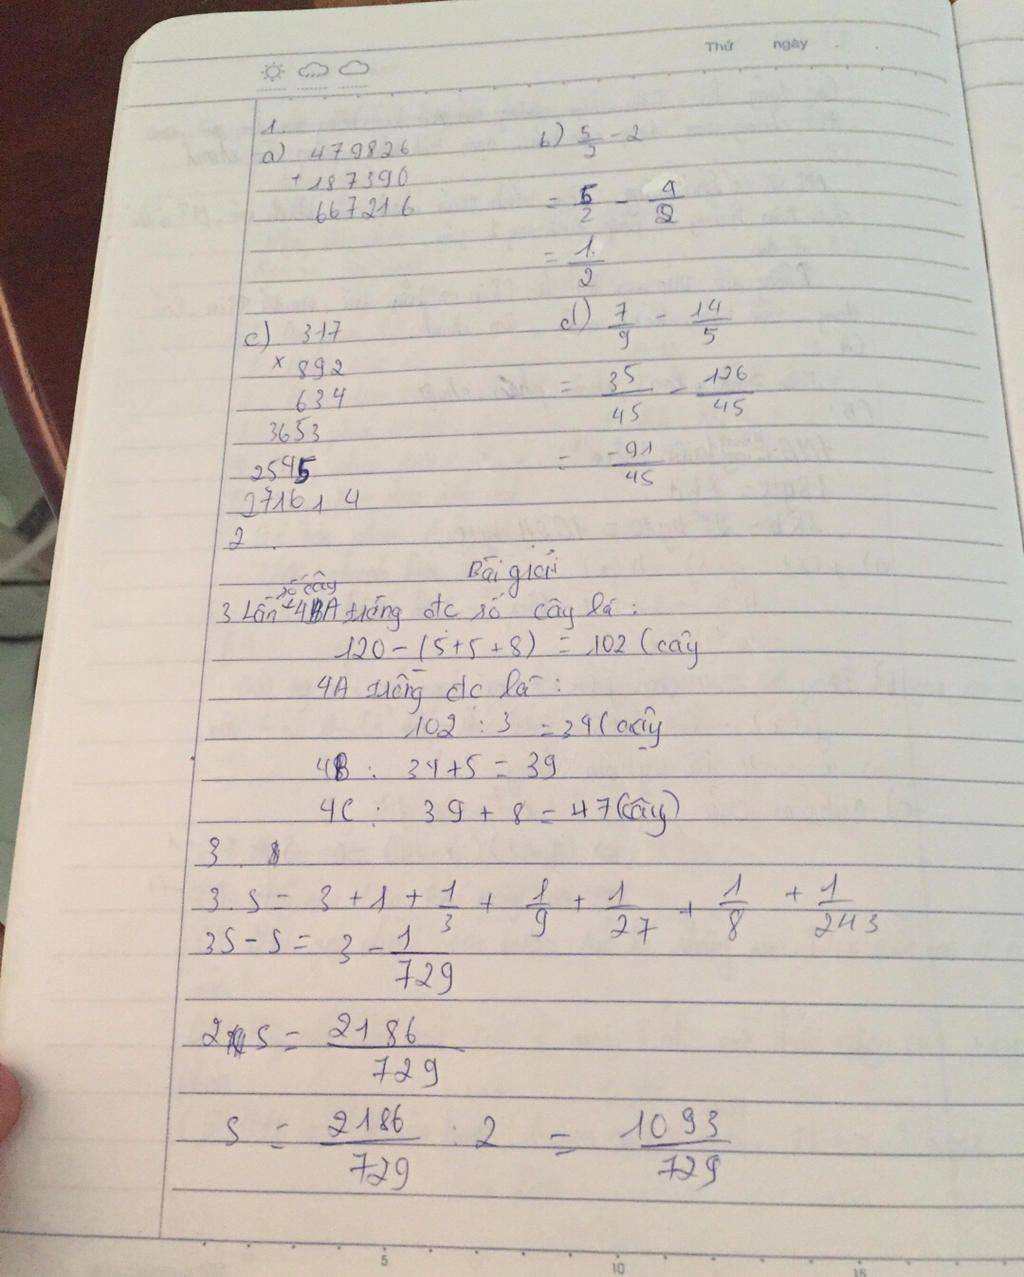 Thứ ngày
1.
a) 479826
+ 187390
667216
b) 5/2 - 2
= 5/2 - 4/2
= 1/2
c) 317
x 892
634
3653
2545
271614
d) 7/9 - 14/5
= 35/45 - 126/45
= -91/45
2.
Bài giải
3 Lần số cây 4A trồng đc số cây là:
120 - (5+5+8) = 102 (cây
4A trồng đc là:
102 : 3 = 34 (cây
4B : 34+5 = 39
4C : 39 + 8 = 47 (cây)
3.
3.S = 3 + 1 + 1/3 + 1/9 + 1/27 + 1/8 + 1/243
3S - S = 3 - 1/729
2 S = 2186/729
S = 2186/729 : 2 = 1093/729
5 10 15